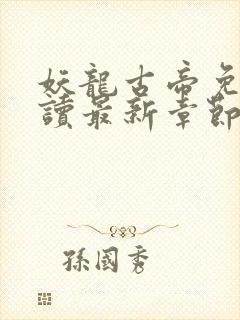 妖龍古帝免
讀最新章節
孫國秀